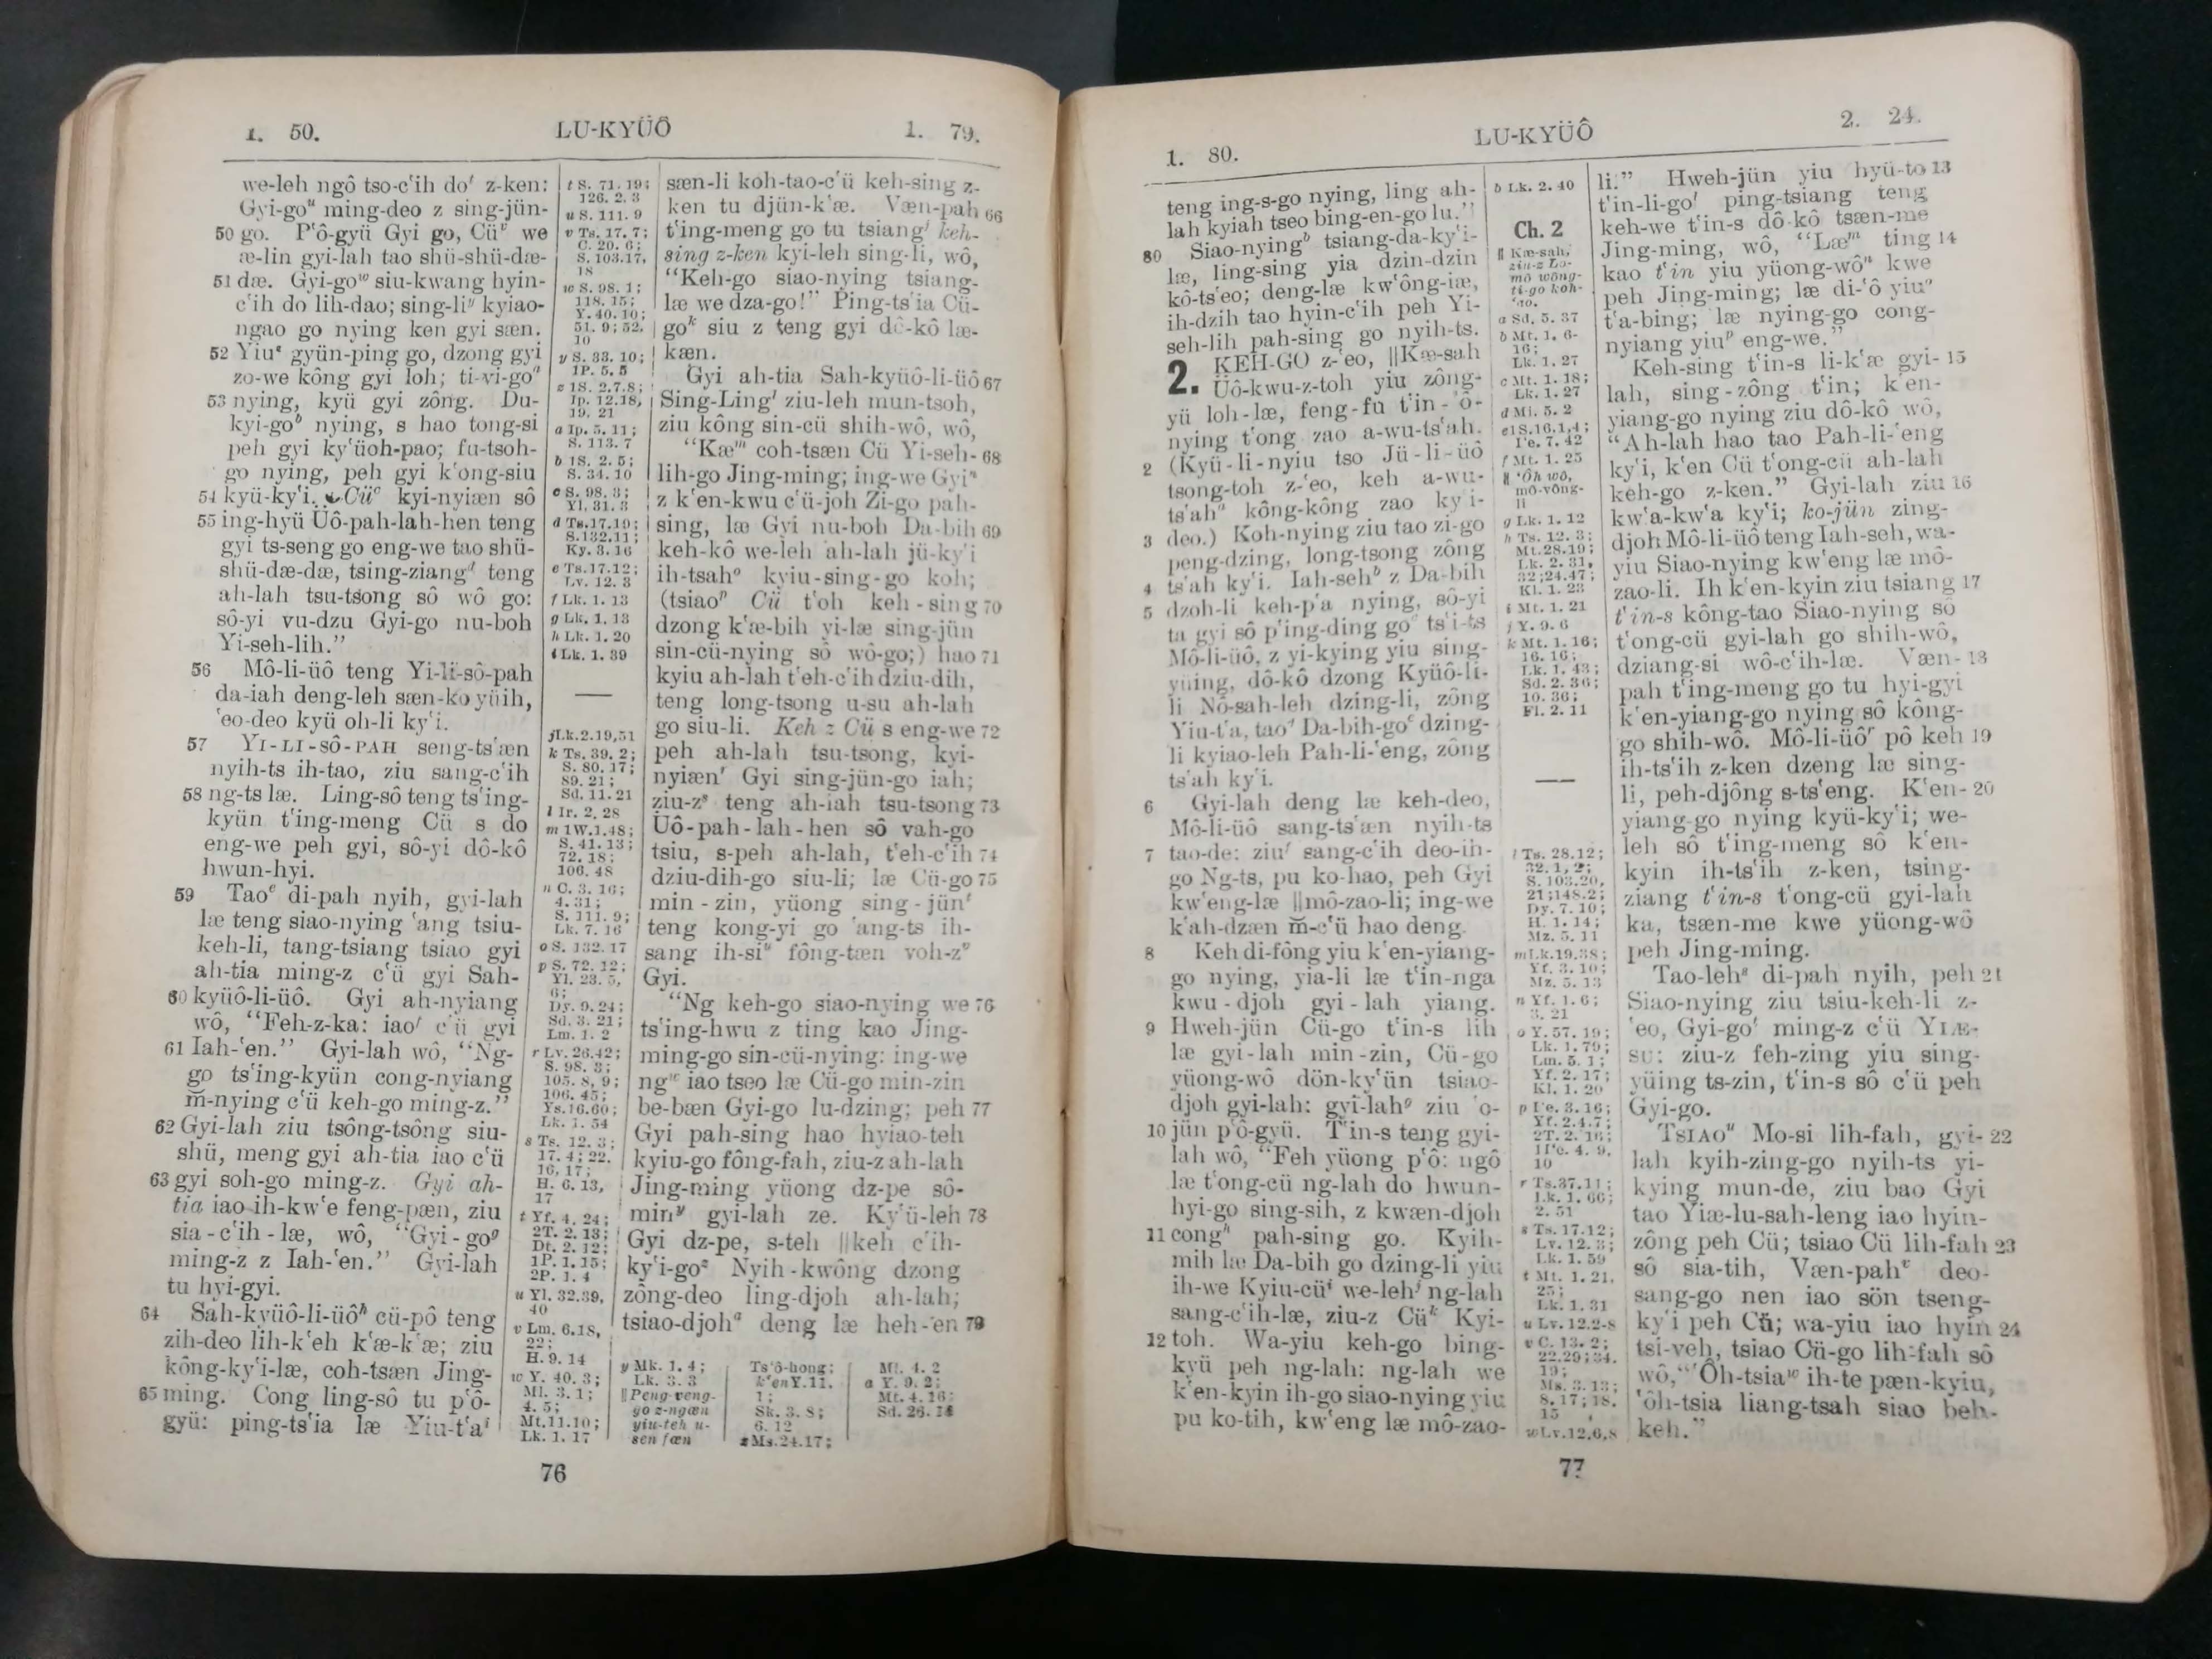 1. 50.
LU-KYÜÔ
1. 79.
we-leh ngô tso-c‘ih do' z-ken:
Gyi-goᵘ ming-deo z sing-jün-
50 go. P‘ô-gyü Gyi go, Cüᵛ we
æ-lin gyi-lah tao shü-shü-dæ-
51 dæ. Gyi-goʷ siu-kwang hyin-
c‘ih do lih-dao; sing-liʸ kyiao-
ngao go nying ken gyi sæn.
52 Yiuᶻ gyün-ping go, dzong gyi
zo-we kông gyi loh; ti-vi-goᵃ
53 nying, kyü gyi zông. Du-
kyi-goᵇ nying, s hao tong-si
peh gyi ky‘üoh-pao; fu-tsoh-
go nying, peh gyi k‘ong-siu
54 kyü-ky‘i. Cüᶜ kyi-nyiæn sô
55 ing-hyü Üô-pah-lah-hen teng
gyi ts-seng go eng-we tao shü-
shü-dæ-dæ, tsing-ziangᵈ teng
ah-lah tsu-tsong sô wô go:
sô-yi vu-dzu Gyi-go nu-boh
Yi-seh-lih.”
56 Mô-li-üô teng Yi-li-sô-pah
da-iah deng-leh sæn-ko yüih,
‘eo-deo kyü oh-li ky‘i.
57 YI-LI-SÔ-PAH seng-ts‘æn
nyih-ts ih-tao, ziu sang-c‘ih
58 ng-ts læ. Ling-sô teng ts‘ing-
kyün t‘ing-meng Cü s do
eng-we peh gyi, sô-yi dô-kô
hwun-hyi.
59 Taoᵉ di-pah nyih, gyi-lah
læ teng siao-nying ‘ang tsiu-
keh-li, tang-tsiang tsiao gyi
ah-tia ming-z c‘ü gyi Sah-
60 kyüô-li-üô. Gyi ah-nyiang
wô, “Feh-z-ka: iaoᶠ c‘ü gyi
61 Iah-‘en.” Gyi-lah wô, “Ng-
go ts‘ing-kyün cong-nyiang
m̆-nying c‘ü keh-go ming-z.”
62 Gyi-lah ziu tsông-tsông siu-
shü, meng gyi ah-tia iao c‘ü
63 gyi soh-go ming-z. Gyi ah-
tia iao ih-kw‘e feng-pæn, ziu
sia-c‘ih-læ, wô, “Gyi-goᵍ
ming-z z Iah-‘en.” Gyi-lah
tu hyi-gyi.
64 Sah-kyüô-li-üôʰ cü-pô teng
zih-deo lih-k‘eh k‘æ-k‘æ; ziu
kông-ky‘i-læ, coh-tsæn Jing-
65 ming. Cong ling-sô tu p‘ô-
gyü: ping-ts‘ia læ Yiu-t‘aⁱ
t S. 71. 19;
126. 2. 3
u S. 111. 9
v Ts. 17. 7;
C. 20. 6;
S. 103.17,
18
w S. 98. 1;
118. 15;
Y. 40. 10;
51. 9; 52.
10
y S. 33. 10;
1P. 5. 5
z 1S. 2.7.8;
Ip. 12.18,
19. 21
a Ip. 5. 11;
S. 113. 7
b 1S. 2. 5;
S. 34. 10
c S. 98. 3;
Yl. 31. 3
d Ts.17.19;
S.132.11;
Ky. 3. 16
e Ts.17.12;
Lv. 12. 3
f Lk. 1. 13
g Lk. 1. 13
h Lk. 1. 20
i Lk. 1. 39
j Lk.2.19,51
k Ts. 39. 2;
S. 80. 17;
89. 21;
Sd. 11. 21
l Ir. 2. 28
m 1W.1.48;
S. 41. 13;
72. 18;
106. 48
n C. 3. 16;
4. 31;
S. 111. 9;
Lk. 7. 16
o S. 132. 17
p S. 72. 12;
Yl. 23. 5,
6;
Dy. 9. 24;
Sd. 3. 21;
Lm. 1. 2
r Lv. 26.42;
S. 98. 3;
105. 8, 9;
106. 45;
Ys.16.60;
Lk. 1. 54
s Ts. 12. 3;
17. 4; 22.
16, 17;
H. 6. 13,
17
t Yf. 4. 24;
2T. 2. 13;
Dt. 2. 12;
1P. 1. 15;
2P. 1. 4
u Yl. 32.39,
40
v Lm. 6.18,
22;
H. 9. 14
w Y. 40. 3;
Ml. 3. 1;
4. 5;
Mt.11.10;
Lk. 1. 17
sæn-li koh-tao-c‘ü keh-sing z-
ken tu djün-k‘æ. Væn-pah 66
t‘ing-meng go tu tsiangʲ keh-
sing z-ken kyi-leh sing-li, wô,
“Keh-go siao-nying tsiang-
læ we dza-go!” Ping-ts‘ia Cü-
goᵏ siu z teng gyi dô-kô læ-
kæn.
Gyi ah-tia Sah-kyüô-li-üô 67
Sing-Lingˡ ziu-leh mun-tsoh,
ziu kông sin-cü shih-wô, wô,
“Kæᵐ coh-tsæn Cü Yi-seh- 68
lih-go Jing-ming; ing-we Gyiⁿ
z k‘en-kwu c‘ü-joh Zi-go pah-
sing, læ Gyi nu-boh Da-bih 69
keh-kô we-leh ah-lah jü-ky‘i
ih-tsahᵒ kyiu-sing-go koh;
(tsiaoᵖ Cü t‘oh keh-sing 70
dzong k‘æ-bih yi-læ sing-jün
sin-cü-nying sô wô-go;) hao 71
kyiu ah-lah t‘eh-c‘ih dziu-dih,
teng long-tsong u-su ah-lah
go siu-li. Keh z Cü s eng-we 72
peh ah-lah tsu-tsong, kyi-
nyiænʳ Gyi sing-jün-go iah;
ziu-zˢ teng ah-iah tsu-tsong 73
Üô-pah-lah-hen sô vah-go
tsiu, s-peh ah-lah, t‘eh-c‘ih 74
dziu-dih-go siu-li; læ Cü-go 75
min-zin, yüong sing-jünᵗ
teng kong-yi go ‘ang-ts ih-
sang ih-siᵘ fông-tæn voh-zᵛ
Gyi.
“Ng keh-go siao-nying we 76
ts‘ing-hwu z ting kao Jing-
ming-go sin-cü-nying: ing-we
ngʷ iao tseo læ Cü-go min-zin
be-bæn Gyi-go lu-dzing; peh 77
Gyi pah-sing hao hyiao-teh
kyiu-go fông-fah, ziu-z ah-lah
Jing-ming yüong dz-pe sô-
minʸ gyi-lah ze. Ky‘ü-leh 78
Gyi dz-pe, s-teh ‖keh c‘ih-
ky‘i-goᶻ Nyih-kwông dzong
zông-deo ling-djoh ah-lah;
tsiao-djohᵃ deng læ heh-‘en 79
y Mk. 1. 4;
Lk. 3. 3
‖Peng-veng-
go z-ngæn
yiu-teh u-
sen fæn
Ts‘ô-hong;
k‘en Y.11.
1;
Sk. 3. 8;
6. 12
z Ms.24.17;
Ml. 4. 2
a Y. 9. 2;
Mt. 4. 16;
Sd. 26. 18
76
1. 80.
LU-KYÜÔ
2. 24.
teng ing-s-go nying, ling ah-
lah kyiah tseo bing-en-go lu.”
80 Siao-nyingᵇ tsiang-da-ky‘i-
læ, ling-sing yia dzin-dzin
kô-ts‘eo; deng-læ kw‘ông-iæ,
ih-dzih tao hyin-c‘ih peh Yi-
seh-lih pah-sing go nyih-ts.
2. KEH-GO z-‘eo, ‖Kæ-sah
Üô-kwu-z-toh yiu zông-
yü loh-læ, feng-fu t‘in-‘ô-
nying t‘ong zao a-wu-ts‘ah.
2 (Kyü-li-nyiu tso Jü-li-üô
tsong-toh z-‘eo, keh a-wu-
ts‘ahᵃ kông-kông zao ky‘i-
3 deo.) Koh-nying ziu tao zi-go
peng-dzing, long-tsong zông
4 ts‘ah ky‘i. Iah-sehᵇ z Da-bih
5 dzoh-li keh-p‘a nying, sô-yi
ta gyi sô p‘ing-ding goᶜ ts‘i-ts
Mô-li-üô, z yi-kying yiu sing-
yüing, dô-kô dzong Kyüô-li-
li Nô-sah-leh dzing-li, zông
Yiu-t‘a, taoᵈ Da-bih-goᵉ dzing-
li kyiao-leh Pah-li-‘eng, zông
ts‘ah ky‘i.
6 Gyi-lah deng læ keh-deo,
Mô-li-üô sang-ts‘æn nyih-ts
7 tao-de: ziuᶠ sang-c‘ih deo-ih-
go Ng-ts, pu ko-hao, peh Gyi
kw‘eng-læ ‖mô-zao-li; ing-we
k‘ah-dzæn m̆-c‘ü hao deng.
8 Keh di-fông yiu k‘en-yiang-
go nying, yia-li læ t‘in-nga
kwu-djoh gyi-lah yiang.
9 Hweh-jün Cü-go t‘in-s lih
læ gyi-lah min-zin, Cü-go
yüong-wô dön-ky‘ün tsiao-
djoh gyi-lah: gyi-lahᵍ ziu ‘o-
10 jün p‘ô-gyü. T‘in-s teng gyi-
lah wô, “Feh yüong p‘ô: ngô
læ t‘ong-cü ng-lah do hwun-
hyi-go sing-sih, z kwæn-djoh
11 congʰ pah-sing go. Kyih-
mih læ Da-bih go dzing-li yiu
ih-we Kyiu-cüⁱ we-lehʲ ng-lah
sang-c‘ih-læ, ziu-z Cüᵏ Kyi-
12 toh. Wa-yiu keh-go bing-
kyü peh ng-lah: ng-lah we
k‘en-kyin ih-go siao-nying yiu
pu ko-tih, kw‘eng læ mô-zao-
b Lk. 2. 40
Ch. 2
‖ Kæ-sah,
ziu-z Lo-
mô wông-
ti-go koh-
‘ao.
a Sd. 5. 37
b Mt. 1. 6-
16;
Lk. 1. 27
c Mt. 1. 18;
Lk. 1. 27
d Mi. 5. 2
e 1S.16.1,4;
I‘e. 7. 42
f Mt. 1. 25
‖ ‘Ôh wô,
mô-vông-
li
g Lk. 1. 12
h Ts. 12. 3;
Mt.28.19;
Lk. 2. 31,
32;24.47;
Kl. 1. 23
i Mt. 1. 21
j Y. 9. 6
k Mt. 1. 16;
16. 16;
Lk. 1. 43;
Sd. 2. 36;
10. 36;
Fl. 2. 11
l Ts. 28.12;
32. 1, 2;
S. 103.20,
21;148.2;
Dy. 7. 10;
H. 1. 14;
Mz. 5. 11
m Lk.19.38;
Yf. 3. 10;
Mz. 5. 13
n Yf. 1. 6;
3. 21
o Y. 57. 19;
Lk. 1. 79;
Lm. 5. 1;
Yf. 2. 17;
Kl. 1. 20
p I‘e. 3. 16;
Yf. 2.4.7;
2T. 2. 16;
1I‘e. 4. 9,
10
r Ts.37.11;
Lk. 1. 66;
2. 51
s Ts. 17.12;
Lv. 12. 3;
Lk. 1. 59
t Mt. 1. 21,
25;
Lk. 1. 31
u Lv. 12.2-8
v C. 13. 2;
22.29;34.
19;
Ms. 3. 13;
8. 17; 18.
15
w Lv.12.6,8
li.” Hweh-jün yiu hyü-to 13
t‘in-li-goˡ ping-tsiang teng
keh-we t‘in-s dô-kô tsæn-me
Jing-ming, wô, “Læᵐ ting 14
kao t‘in yiu yüong-wôⁿ kwe
peh Jing-ming; læ di-‘ô yiuᵒ
t‘a-bing; læ nying-go cong-
nyiang yiuᵖ eng-we.”
Keh-sing t‘in-s li-k‘æ gyi- 15
lah, sing-zông t‘in; k‘en-
yiang-go nying ziu dô-kô wô,
“Ah-lah hao tao Pah-li-‘eng
ky‘i, k‘en Cü t‘ong-cü ah-lah
keh-go z-ken.” Gyi-lah ziu 16
kw‘a-kw‘a ky‘i; ko-jün zing-
djoh Mô-li-üô teng Iah-seh, wa-
yiu Siao-nying kw‘eng læ mô-
zao-li. Ih k‘en-kyin ziu tsiang 17
t‘in-s kông-tao Siao-nying sô
t‘ong-cü gyi-lah go shih-wô,
dziang-si wô-c‘ih-læ. Væn- 18
pah t‘ing-meng go tu hyi-gyi
k‘en-yiang-go nying sô kông-
go shih-wô. Mô-li-üôʳ pô keh 19
ih-ts‘ih z-ken dzeng læ sing-
li, peh-djông s-ts‘eng. K‘en- 20
yiang-go nying kyü-ky‘i; we-
leh sô t‘ing-meng sô k‘en-
kyin ih-ts‘ih z-ken, tsing-
ziang t‘in-s t‘ong-cü gyi-lah
ka, tsæn-me kwe yüong-wô
peh Jing-ming.
Tao-lehˢ di-pah nyih, peh 21
Siao-nying ziu tsiu-keh-li z-
‘eo, Gyi-goᵗ ming-z c‘ü YIÆ-
SU: ziu-z feh-zing yiu sing-
yüing ts-zin, t‘in-s sô c‘ü peh
Gyi-go.
TSIAOᵘ Mo-si lih-fah, gyi- 22
lah kyih-zing-go nyih-ts yi-
kying mun-de, ziu bao Gyi
tao Yiæ-lu-sah-leng iao hyin-
zông peh Cü; tsiao Cü lih-fah 23
sô sia-tih, Væn-pahᵛ deo-
sang-go nen iao sön tseng-
ky‘i peh Cü; wa-yiu iao hyin 24
tsi-veh, tsiao Cü-go lih-fah sô
wô, “‘Ôh-tsiaʷ ih-te pæn-kyiu,
‘ôh-tsia liang-tsah siao beh-
keh.”
77